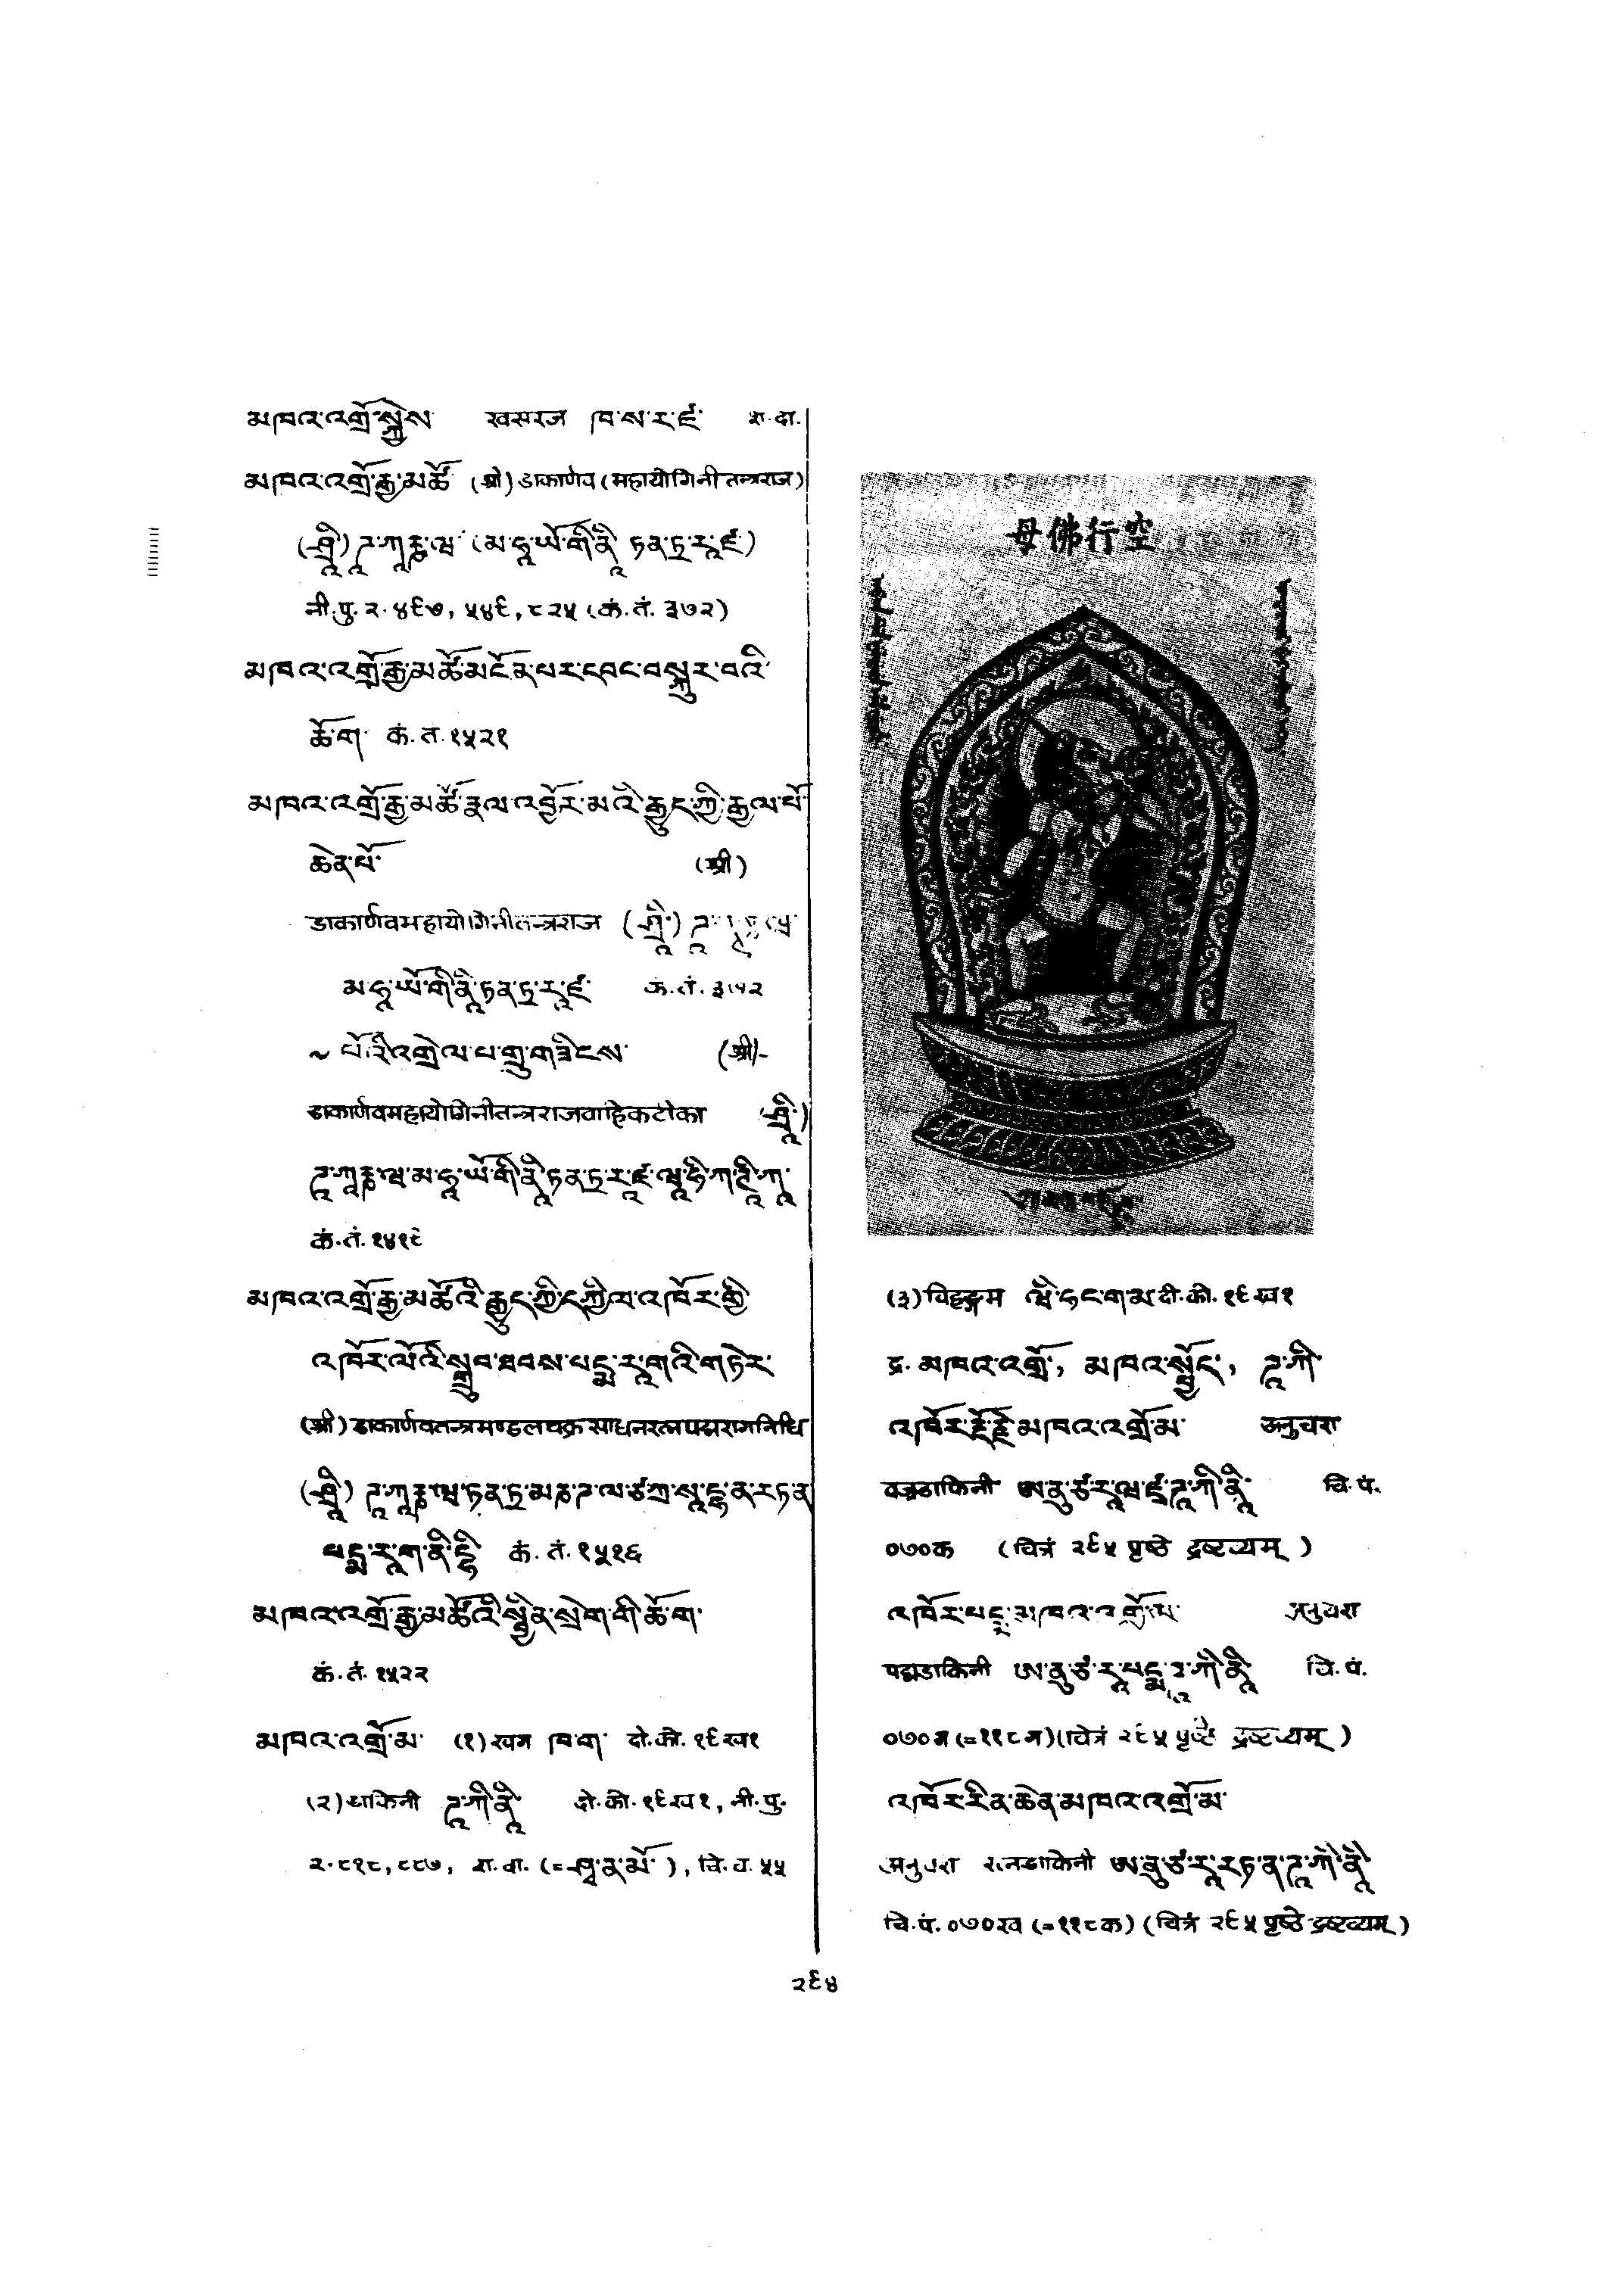 མཁའ་འགྲོ་སྐྱེས་ खसरज ཁ་ས་ར་ཛ་ श.वा.
མཁའ་འགྲོ་རྒྱ་མཚོ་ (श्री) डाकार्णव (महायोगिनीतन्त्रराज)
(ཤྲཱི་) ཌཱ་ཀཱརྞ་ཝ་ (མ་ཧཱ་ཡོ་གི་ནཱི་ ཏན་ཏྲ་རཱ་ཛ་)
नी.पु. २.४९७, ५४९, ८२५ (कं.तं. ३७२)
མཁའ་འགྲོ་རྒྱ་མཚོ་མངོན་པར་དབང་བསྐུར་བའི་
ཆོ་ག་ कं.तं.१५२१
མཁའ་འགྲོ་རྒྱ་མཚོ་རྣལ་འབྱོར་མའི་རྒྱུད་ཀྱི་རྒྱལ་པོ་
ཆེན་པོ་ (श्री)
डाकार्णवमहायोगिनीतन्त्रराज (ཤྲཱི་) ཌཱ་
མ་ཧཱ་ཡོ་གི་ནཱི་ཏན་ཏྲ་རཱ་ཛ་ कं.तं. ३७२
~ པོའི་འགྲེལ་པ་གྲུ་གཟིངས་ (श्री)-
डाकार्णवमहायोगिनीतन्त्रराजवाहिकटीका (ཤྲཱི་)
ཌཱ་ཀཱརྞ་ཝ་མ་ཧཱ་ཡོ་གི་ནཱི་ཏན་ཏྲ་རཱ་ཛ་ཝཱ་ཧི་ཀ་ཊཱི་ཀཱ་
कं.तं. १४१९
མཁའ་འགྲོ་རྒྱ་མཚོའི་རྒྱུད་ཀྱི་དཀྱིལ་འཁོར་གྱི་
འཁོར་ལོའི་སྒྲུབ་ཐབས་པདྨ་རཱ་གའི་གཏེར་
(श्री) डाकार्णवतन्त्रमण्डलचक्रसाधनरत्नपद्मरागनिधि
(ཤྲཱི་) ཌཱ་ཀཱརྞ་ཝ་ཏན་ཏྲ་མཎ་ཌ་ལ་ཙཀྲ་སཱ་དྷ་ན་རཏན་
པདྨ་རཱ་ག་ནི་དྷི་ कं.तं.१५१६
མཁའ་འགྲོ་རྒྱ་མཚོའི་སྦྱིན་སྲེག་གི་ཆོ་ག་
कं.तं. १५२२
མཁའ་འགྲོ་མ་ (१) खग ཁ་ག་ दो.को. १९ख१
(२) डाकिनी ཌཱ་ཀི་ནཱི་ दो.को. १९ख१, नी.पु.
२.८१८, ८८७, श.वा. (=ཤྭ་ན་མོ་), चि.व. ५५
母佛行空
(३) विहङ्गम ཝི་ཧང་ག་མ दो.को. १९ख१
द्र. མཁའ་འགྲོ་, མཁའ་སྤྱོད་, ཌཱ་ཀི་
འཁོར་རྡོ་རྗེ་མཁའ་འགྲོ་མ་ अनुचरा
वज्रडाकिनी ཨ་ནུ་ཙ་རཱ་ཝ་ཛྲ་ཌཱ་ཀི་ནཱི་ चि.पं.
०७०क (चित्रं २९५ पृष्ठे द्रष्टव्यम्)
འཁོར་པདྨ་མཁའ་འགྲོ་མ་ अनुचरा
पद्मडाकिनी ཨ་ནུ་ཙ་རཱ་པདྨ་ཌཱ་ཀི་ནཱི་ चि.पं.
०७०ग (=११८ग) (चित्रं २९५ पृष्ठे द्रष्टव्यम्)
འཁོར་རིན་ཆེན་མཁའ་འགྲོ་མ་
अनुचरा रत्नडाकिनी ཨ་ནུ་ཙ་རཱ་རཏ་ན་ཌཱ་ཀི་ནཱི་
चि.पं. ०७०ख (=११८क) (चित्रं २९५ पृष्ठे द्रष्टव्यम्)
२९४